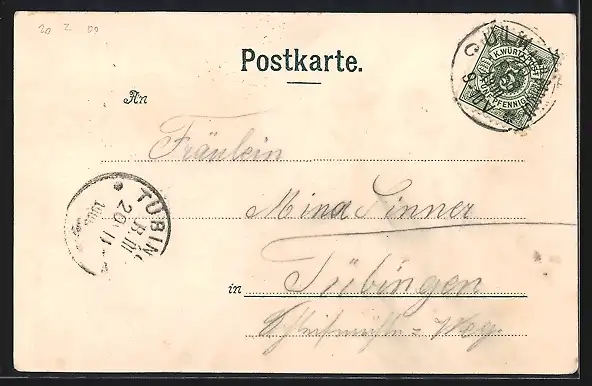 20 2 00
Postkarte.
ULM
K.WÜRTT. POST
5
FÜNF PFENNIG
An
Fräulein
Mina Sinner
TÜBIN
20 II
in Tübingen
Weg.